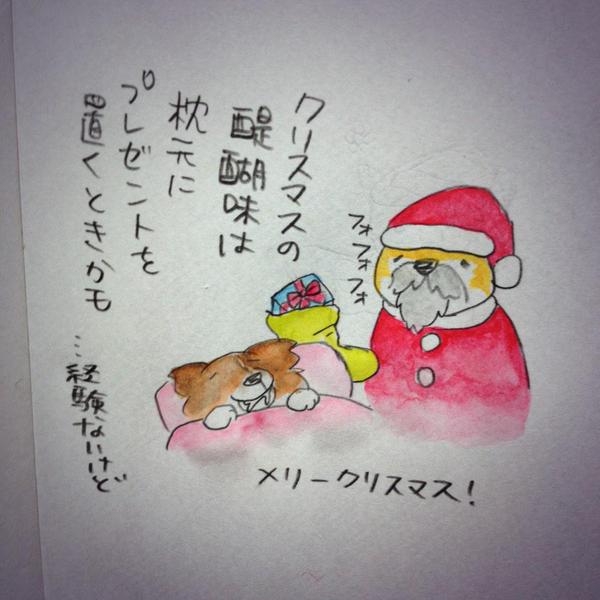 クリスマスの
醍醐味は
枕元に
プレゼントを
置くときかも
…経験ないけど
フォ
フォ
フォ
メリークリスマス!